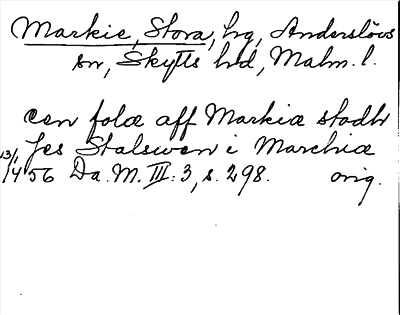 Markie, Stora, hg, Anderslövs
sn, Skytts hd, Malm. l.
een folæ aff Markiæ stadh
Jes Stalswen i Marchiæ
13/1 1456 Da. M. III: 3, s. 298. orig.